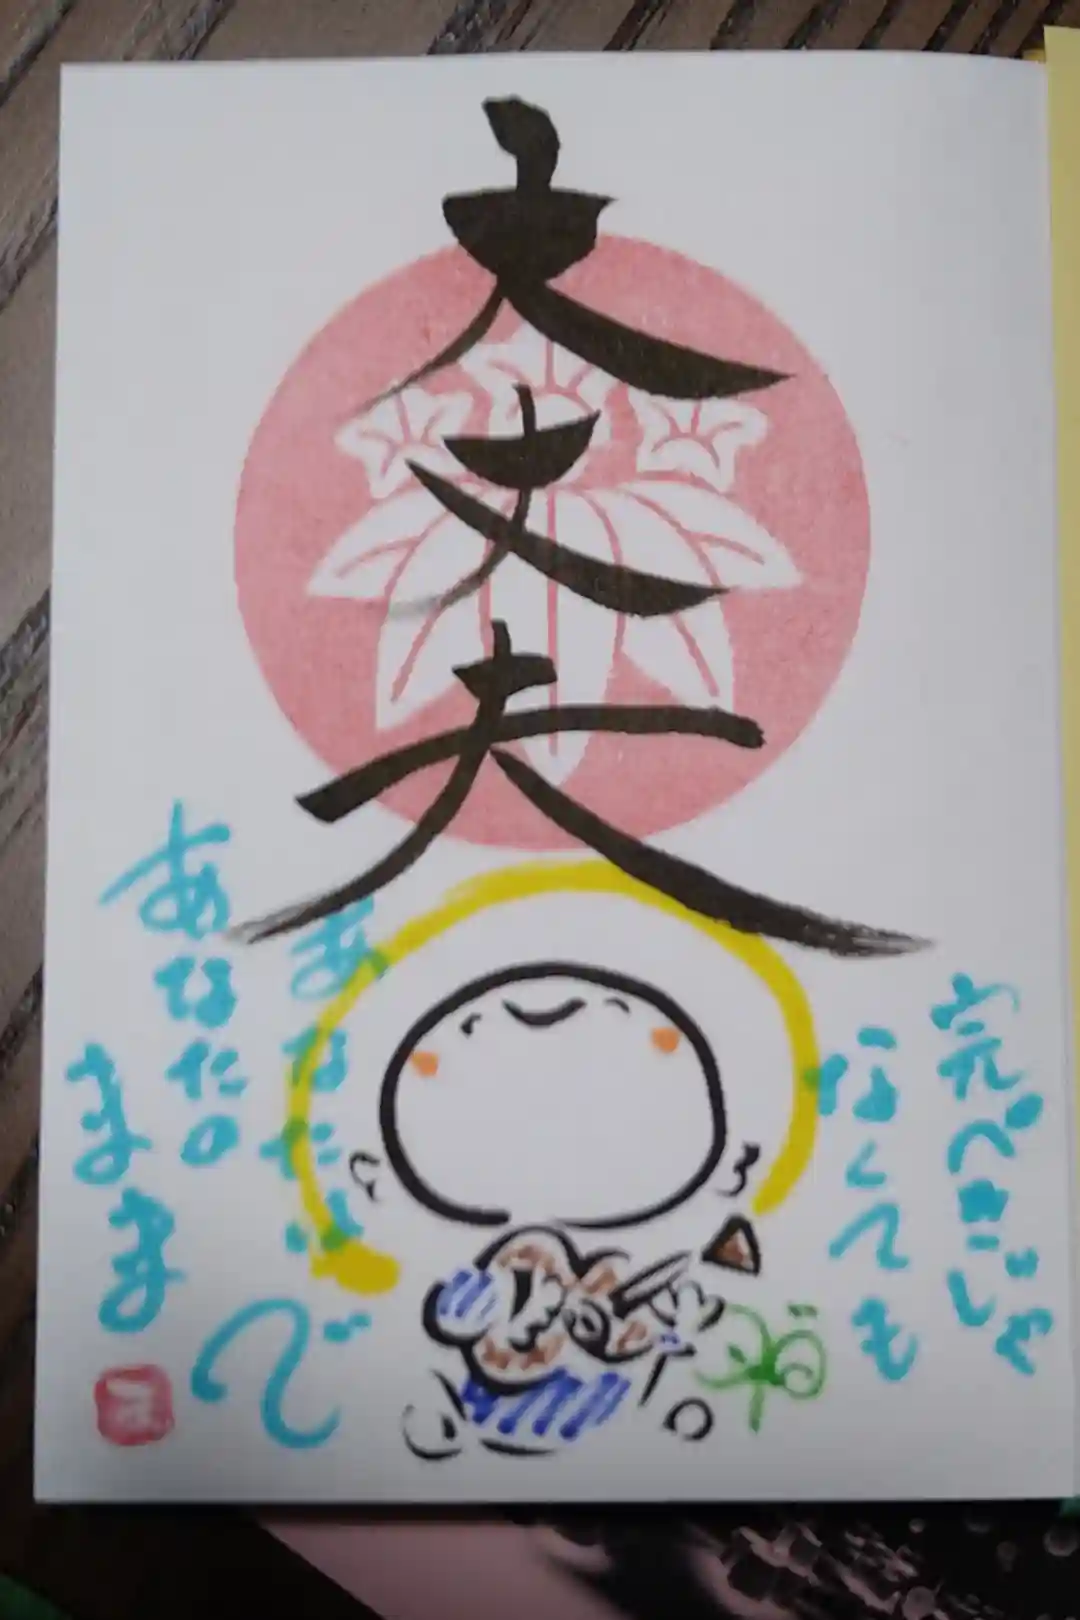 大丈夫
完ぺきじゃ
なくても
あなたは
あなたの
まま
で